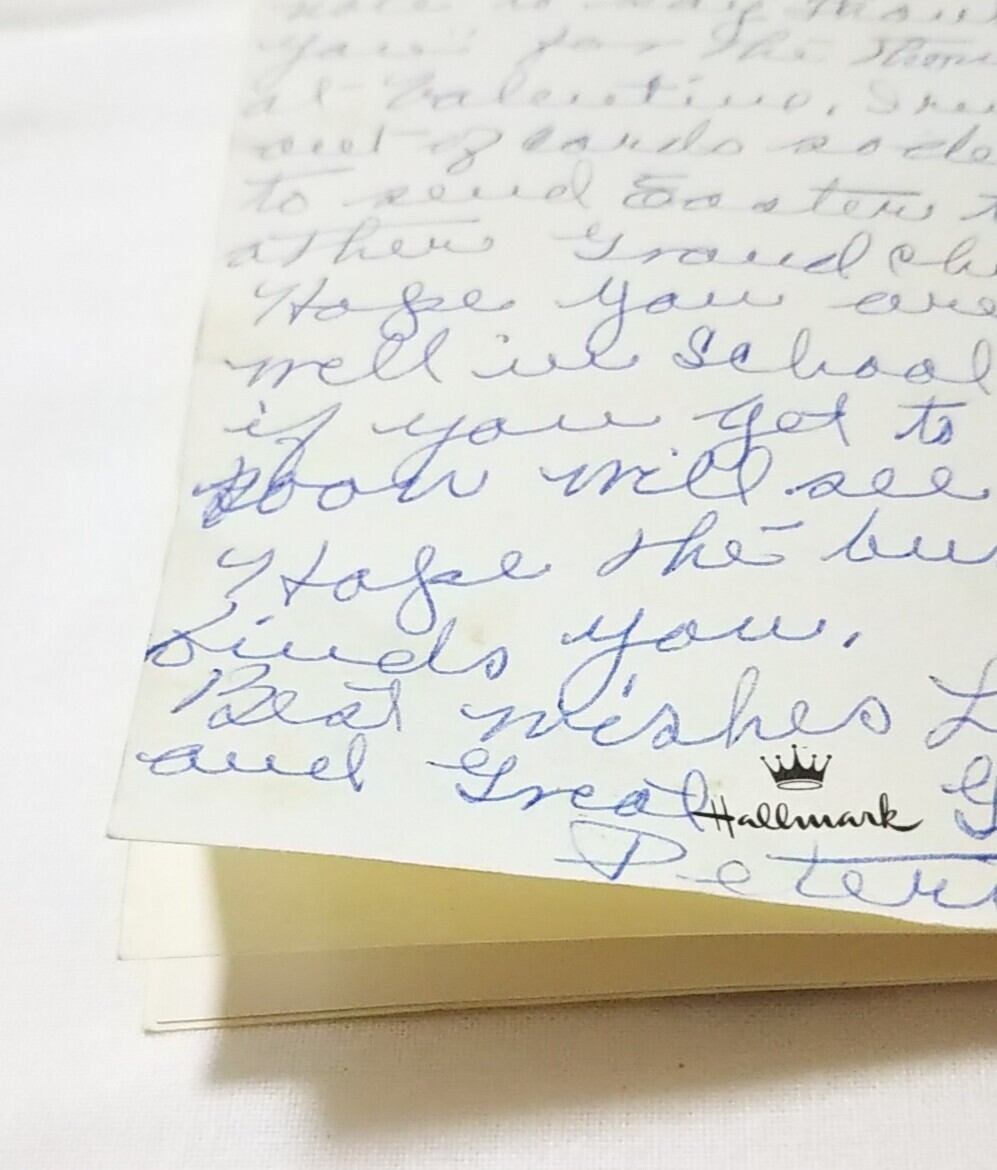 you for the
at Valentine.
out of cards so de
to send Easter t
other Grand Ch
Hope you are
well in School
if you get to
soon will see
Hope the bu
finds you.
Best wishes L
and Great G
Hallmark
Peter